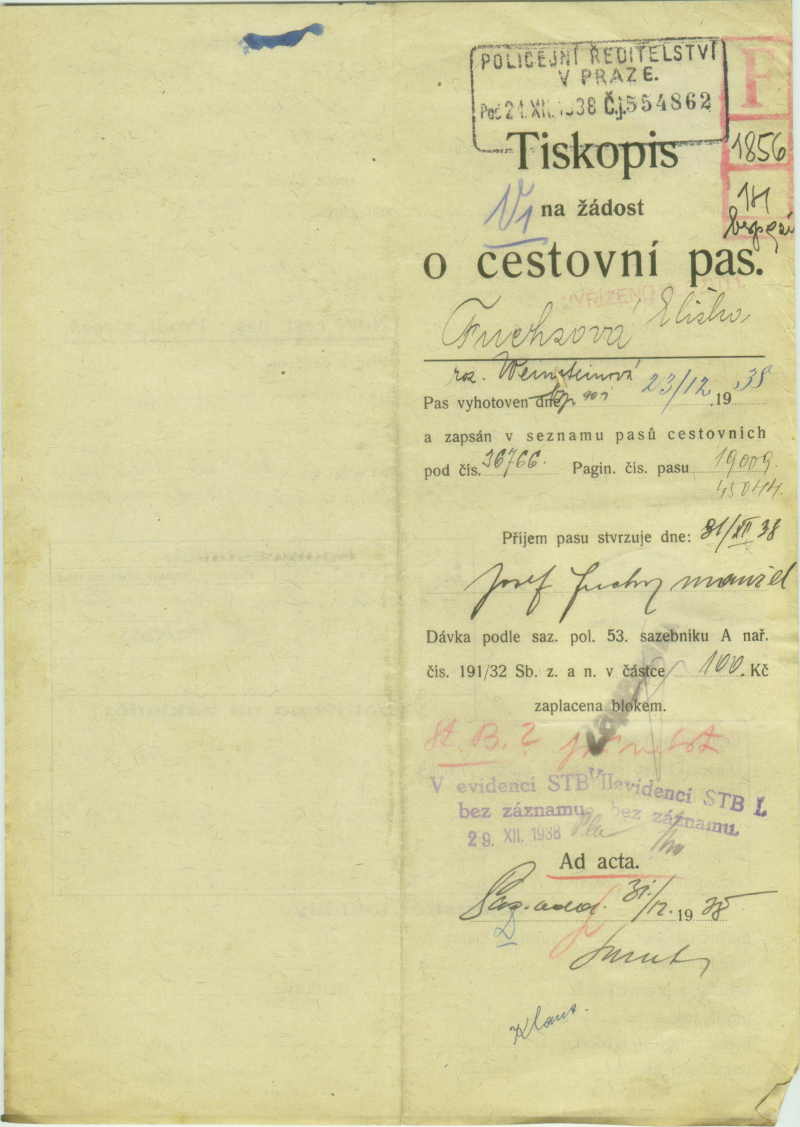 POLICEJNÍ ŘEDITELSTVÍ
V PRAZE.
Poč 21. XII. 1938 Č.j. 554862
F
1856
Tiskopis
V1
na žádost
o cestovní pas.
VYŘÍZENO
Fuchsová Eliška
roz. Weinsteinová
Pas vyhotoven dne 23/12 .19 38
a zapsán v seznamu pasů cestovních
pod čís. 36766. Pagin. čís. pasu 19009.
45044.
Příjem pasu stvrzuje dne: 31/XII 38
Josef Fuchs manžel
Dávka podle saz. pol. 53. sazebníku A nař.
čís. 191/32 Sb. z. a n. v částce 100. Kč
zaplacena blokem.
St. B. ?
V evidenci STB II
bez záznamu.
V evidenci STB I.
bez záznamu.
29. XII. 1938
Ad acta.
31./12. 19 38
Klaus.